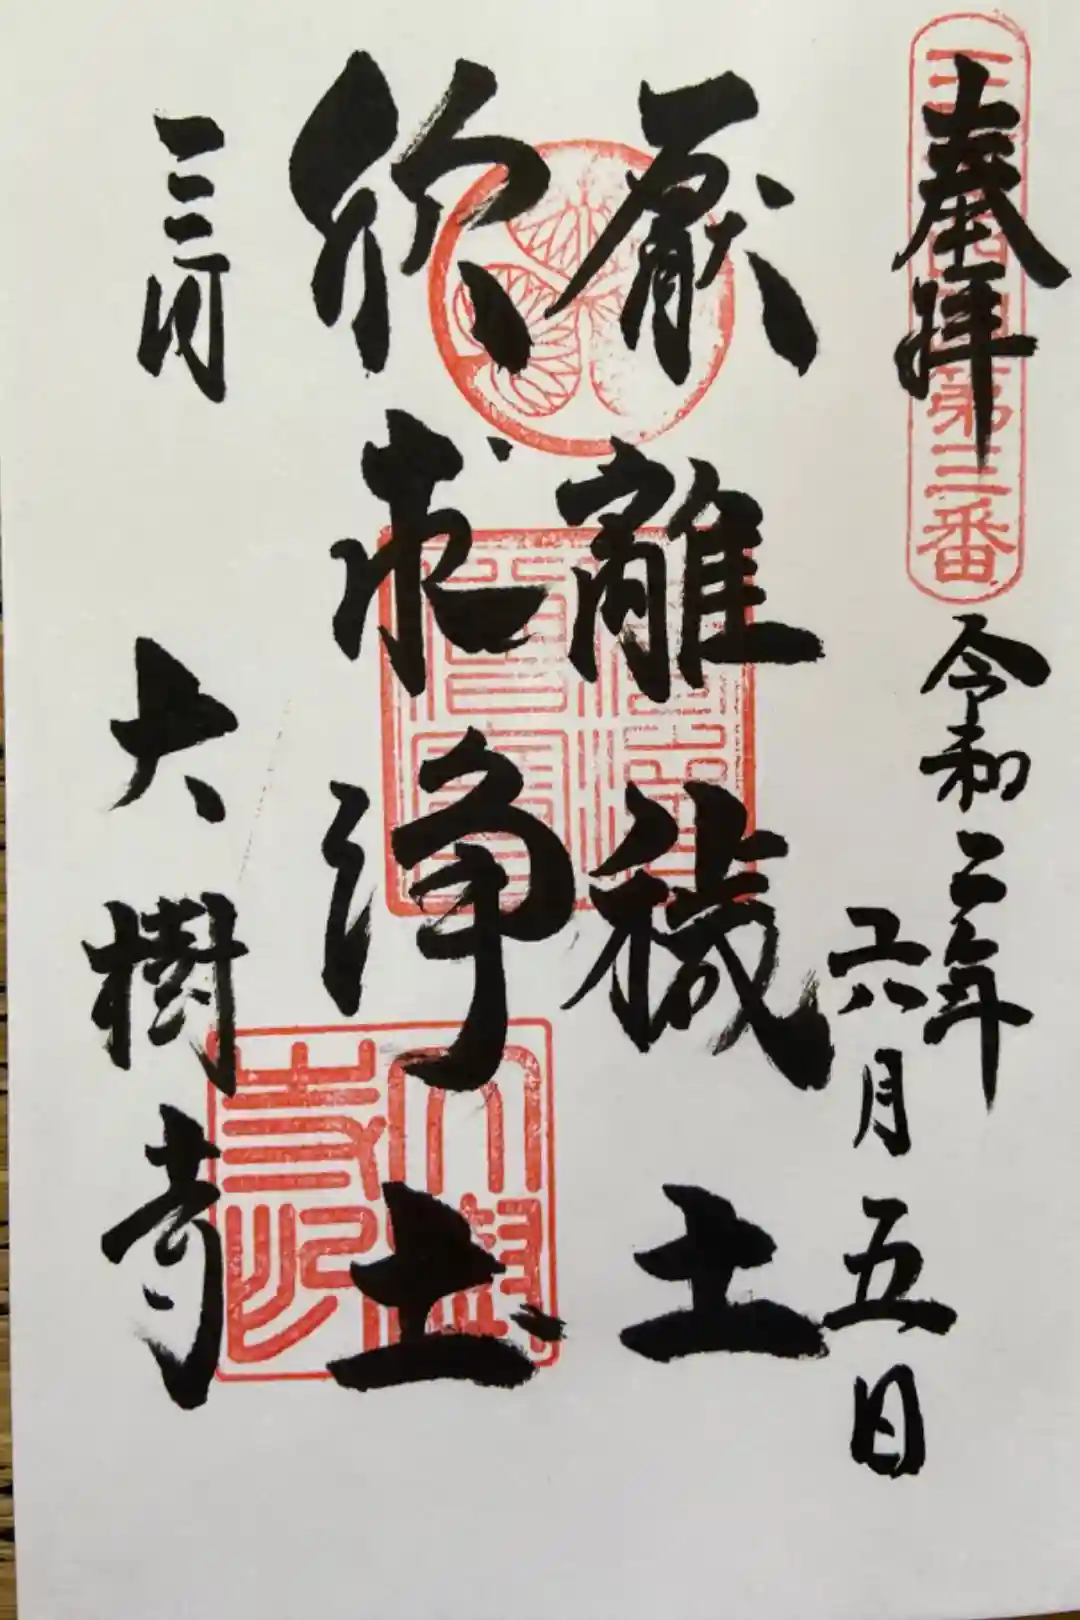 奉拝
第三番
令和二年
六月五日
厭離穢土
欣求浄土
三河
大樹寺